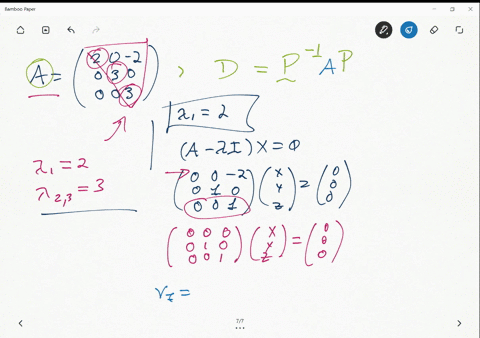 Bamboo Paper
A = ( 2 0 -2 ; 0 3 0 ; 0 0 3 ) , D = P⁻¹ A P
λ₁ = 2
(A - λI) X = 0
λ₁ = 2
λ₂,₃ = 3
( 0 0 -2 ; 0 1 0 ; 0 0 1 ) ( x ; y ; z ) = ( 0 ; 0 ; 0 )
( 0 0 0 ; 0 1 0 ; 0 0 1 ) ( x ; y ; z ) = ( 0 ; 0 ; 0 )
v₁ =
7/7